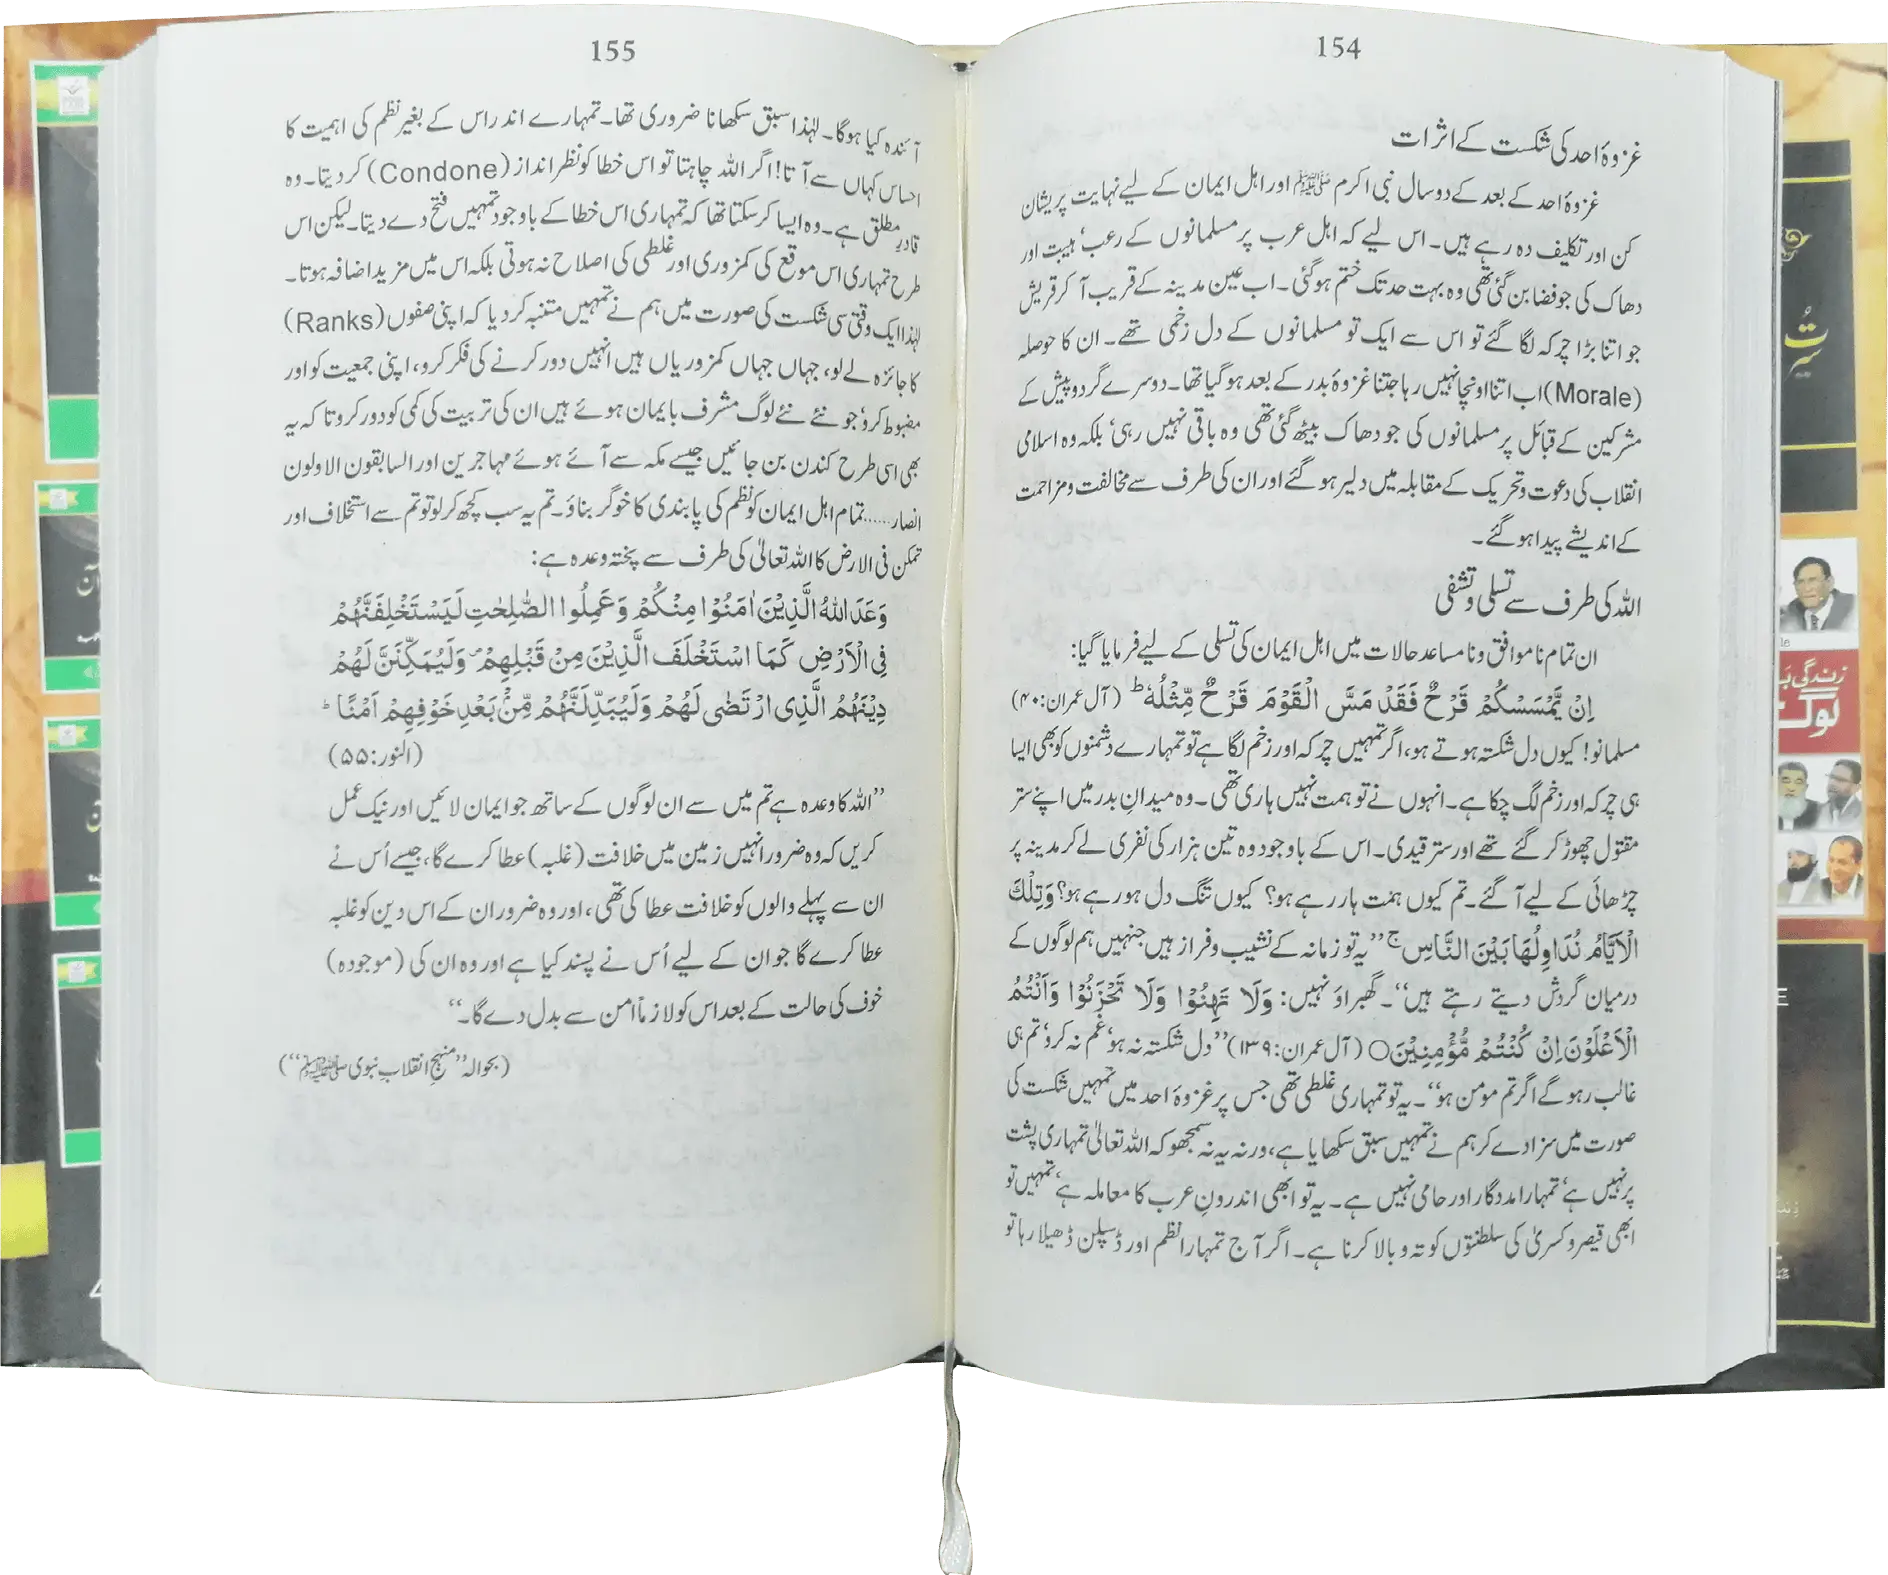 154
غزوۂ احد کی شکست کے اثرات
غزوۂ احد کے بعد کے دو سال نبی اکرم ﷺ اور اہل ایمان کے لیے نہایت پریشان
کن اور تکلیف دہ رہے ہیں۔ اس لیے کہ اہل عرب پر مسلمانوں کے رعب‘ ہیبت اور
دھاک کی جو فضا بن گئی تھی وہ بہت حد تک ختم ہو گئی۔ اب عین مدینہ کے قریب آ کر قریش
جو اتنا بڑا چرکہ لگا گئے تو اس سے ایک تو مسلمانوں کے دل زخمی تھے۔ ان کا حوصلہ
(Morale) اب اتنا اونچا نہیں رہا جتنا غزوۂ بدر کے بعد ہو گیا تھا۔ دوسرے گرد و پیش کے
مشرکین کے قبائل پر مسلمانوں کی جو دھاک بیٹھ گئی تھی وہ باقی نہیں رہی‘ بلکہ وہ اسلامی
انقلاب کی دعوت و تحریک کے مقابلہ میں دلیر ہو گئے اور ان کی طرف سے مخالفت و مزاحمت
کے اندیشے پیدا ہو گئے۔
اللہ کی طرف سے تسلی و تشفی
ان تمام ناموافق و نامساعد حالات میں اہل ایمان کی تسلی کے لیے فرمایا گیا:
اِنْ یَّمْسَسْکُمْ قَرْحٌ فَقَدْ مَسَّ الْقَوْمَ قَرْحٌ مِّثْلُہٗ ؕ (آل عمران:۴۰)
مسلمانو! کیوں دل شکستہ ہوتے ہو، اگر تمہیں چرکہ اور زخم لگا ہے تو تمہارے دشمنوں کو بھی ایسا
ہی چرکہ اور زخم لگ چکا ہے۔ انہوں نے تو ہمت نہیں ہاری تھی۔ وہ میدانِ بدر میں اپنے ستر
مقتول چھوڑ کر گئے تھے اور ستر قیدی۔ اس کے باوجود وہ تین ہزار کی نفری لے کر مدینہ پر
چڑھائی کے لیے آ گئے۔ تم کیوں ہمت ہار رہے ہو؟ کیوں تنگ دل ہو رہے ہو؟ وَتِلْکَ
الْاَیَّامُ نُدَاوِلُہَا بَیْنَ النَّاسِ ۚ ’’یہ تو زمانہ کے نشیب و فراز ہیں جنہیں ہم لوگوں کے
درمیان گردش دیتے رہتے ہیں‘‘۔ گھبراؤ نہیں: وَلَا تَہِنُوْا وَلَا تَحْزَنُوْا وَاَنْتُمُ
الْاَعْلَوْنَ اِنْ کُنْتُمْ مُّؤْمِنِیْنَ○ (آل عمران:۱۳۹) ’’دل شکستہ نہ ہو‘ غم نہ کرو‘ تم ہی
غالب رہو گے اگر تم مومن ہو‘‘۔ یہ تو تمہاری غلطی تھی جس پر غزوۂ احد میں تمہیں شکست کی
صورت میں سزا دے کر ہم نے تمہیں سبق سکھایا ہے، ورنہ یہ نہ سمجھو کہ اللہ تعالیٰ تمہاری پشت
پر نہیں ہے‘ تمہارا مددگار اور حامی نہیں ہے۔ یہ تو ابھی اندرونِ عرب کا معاملہ ہے‘ تمہیں تو
ابھی قیصر و کسریٰ کی سلطنتوں کو تہ و بالا کرنا ہے۔ اگر آج تمہارا نظم اور ڈسپلن ڈھیلا رہا تو
155
آئندہ کیا ہوگا۔ لہٰذا سبق سکھانا ضروری تھا۔ تمہارے اندر اس کے بغیر نظم کی اہمیت کا
احساس کہاں سے آتا! اگر اللہ چاہتا تو اس خطا کو نظر انداز (Condone) کر دیتا۔ وہ
قادرِ مطلق ہے۔ وہ ایسا کر سکتا تھا کہ تمہاری اس خطا کے باوجود تمہیں فتح دے دیتا۔ لیکن اس
طرح تمہاری اس موقع کی کمزوری اور غلطی کی اصلاح نہ ہوتی بلکہ اس میں مزید اضافہ ہوتا۔
لہٰذا ایک وقتی سی شکست کی صورت میں ہم نے تمہیں متنبہ کر دیا کہ اپنی صفوں (Ranks)
کا جائزہ لے لو، جہاں جہاں کمزوریاں ہیں انہیں دور کرنے کی فکر کرو، اپنی جمعیت کو اور
مضبوط کرو‘ جو نئے نئے لوگ مشرف بایمان ہوئے ہیں ان کی تربیت کی کمی کو دور کرو تا کہ یہ
بھی اسی طرح کندن بن جائیں جیسے مکہ سے آئے ہوئے مہاجرین اور السابقون الاولون
انصار...... تمام اہل ایمان کو نظم کی پابندی کا خوگر بناؤ۔ تم یہ سب کچھ کر لو تو تم سے استخلاف اور
تمکن فی الارض کا اللہ تعالیٰ کی طرف سے پختہ وعدہ ہے:
وَعَدَ اللّٰہُ الَّذِیْنَ اٰمَنُوْا مِنْکُمْ وَعَمِلُوا الصّٰلِحٰتِ لَیَسْتَخْلِفَنَّہُمْ
فِی الْاَرْضِ کَمَا اسْتَخْلَفَ الَّذِیْنَ مِنْ قَبْلِہِمْ ۪ وَلَیُمَکِّنَنَّ لَہُمْ
دِیْنَہُمُ الَّذِی ارْتَضٰی لَہُمْ وَلَیُبَدِّلَنَّہُمْ مِّنْۢ بَعْدِ خَوْفِہِمْ اَمْنًا ؕ
(النور:۵۵)
’’اللہ کا وعدہ ہے تم میں سے ان لوگوں کے ساتھ جو ایمان لائیں اور نیک عمل
کریں کہ وہ ضرور انہیں زمین میں خلافت (غلبہ) عطا کرے گا، جیسے اُس نے
ان سے پہلے والوں کو خلافت عطا کی تھی، اور وہ ضرور ان کے اس دین کو غلبہ
عطا کرے گا جو ان کے لیے اُس نے پسند کیا ہے اور وہ ان کی (موجودہ)
خوف کی حالت کے بعد اس کو لازماً امن سے بدل دے گا۔‘‘
(بحوالہ ’’منہجِ انقلابِ نبوی ﷺ‘‘)
زندگی